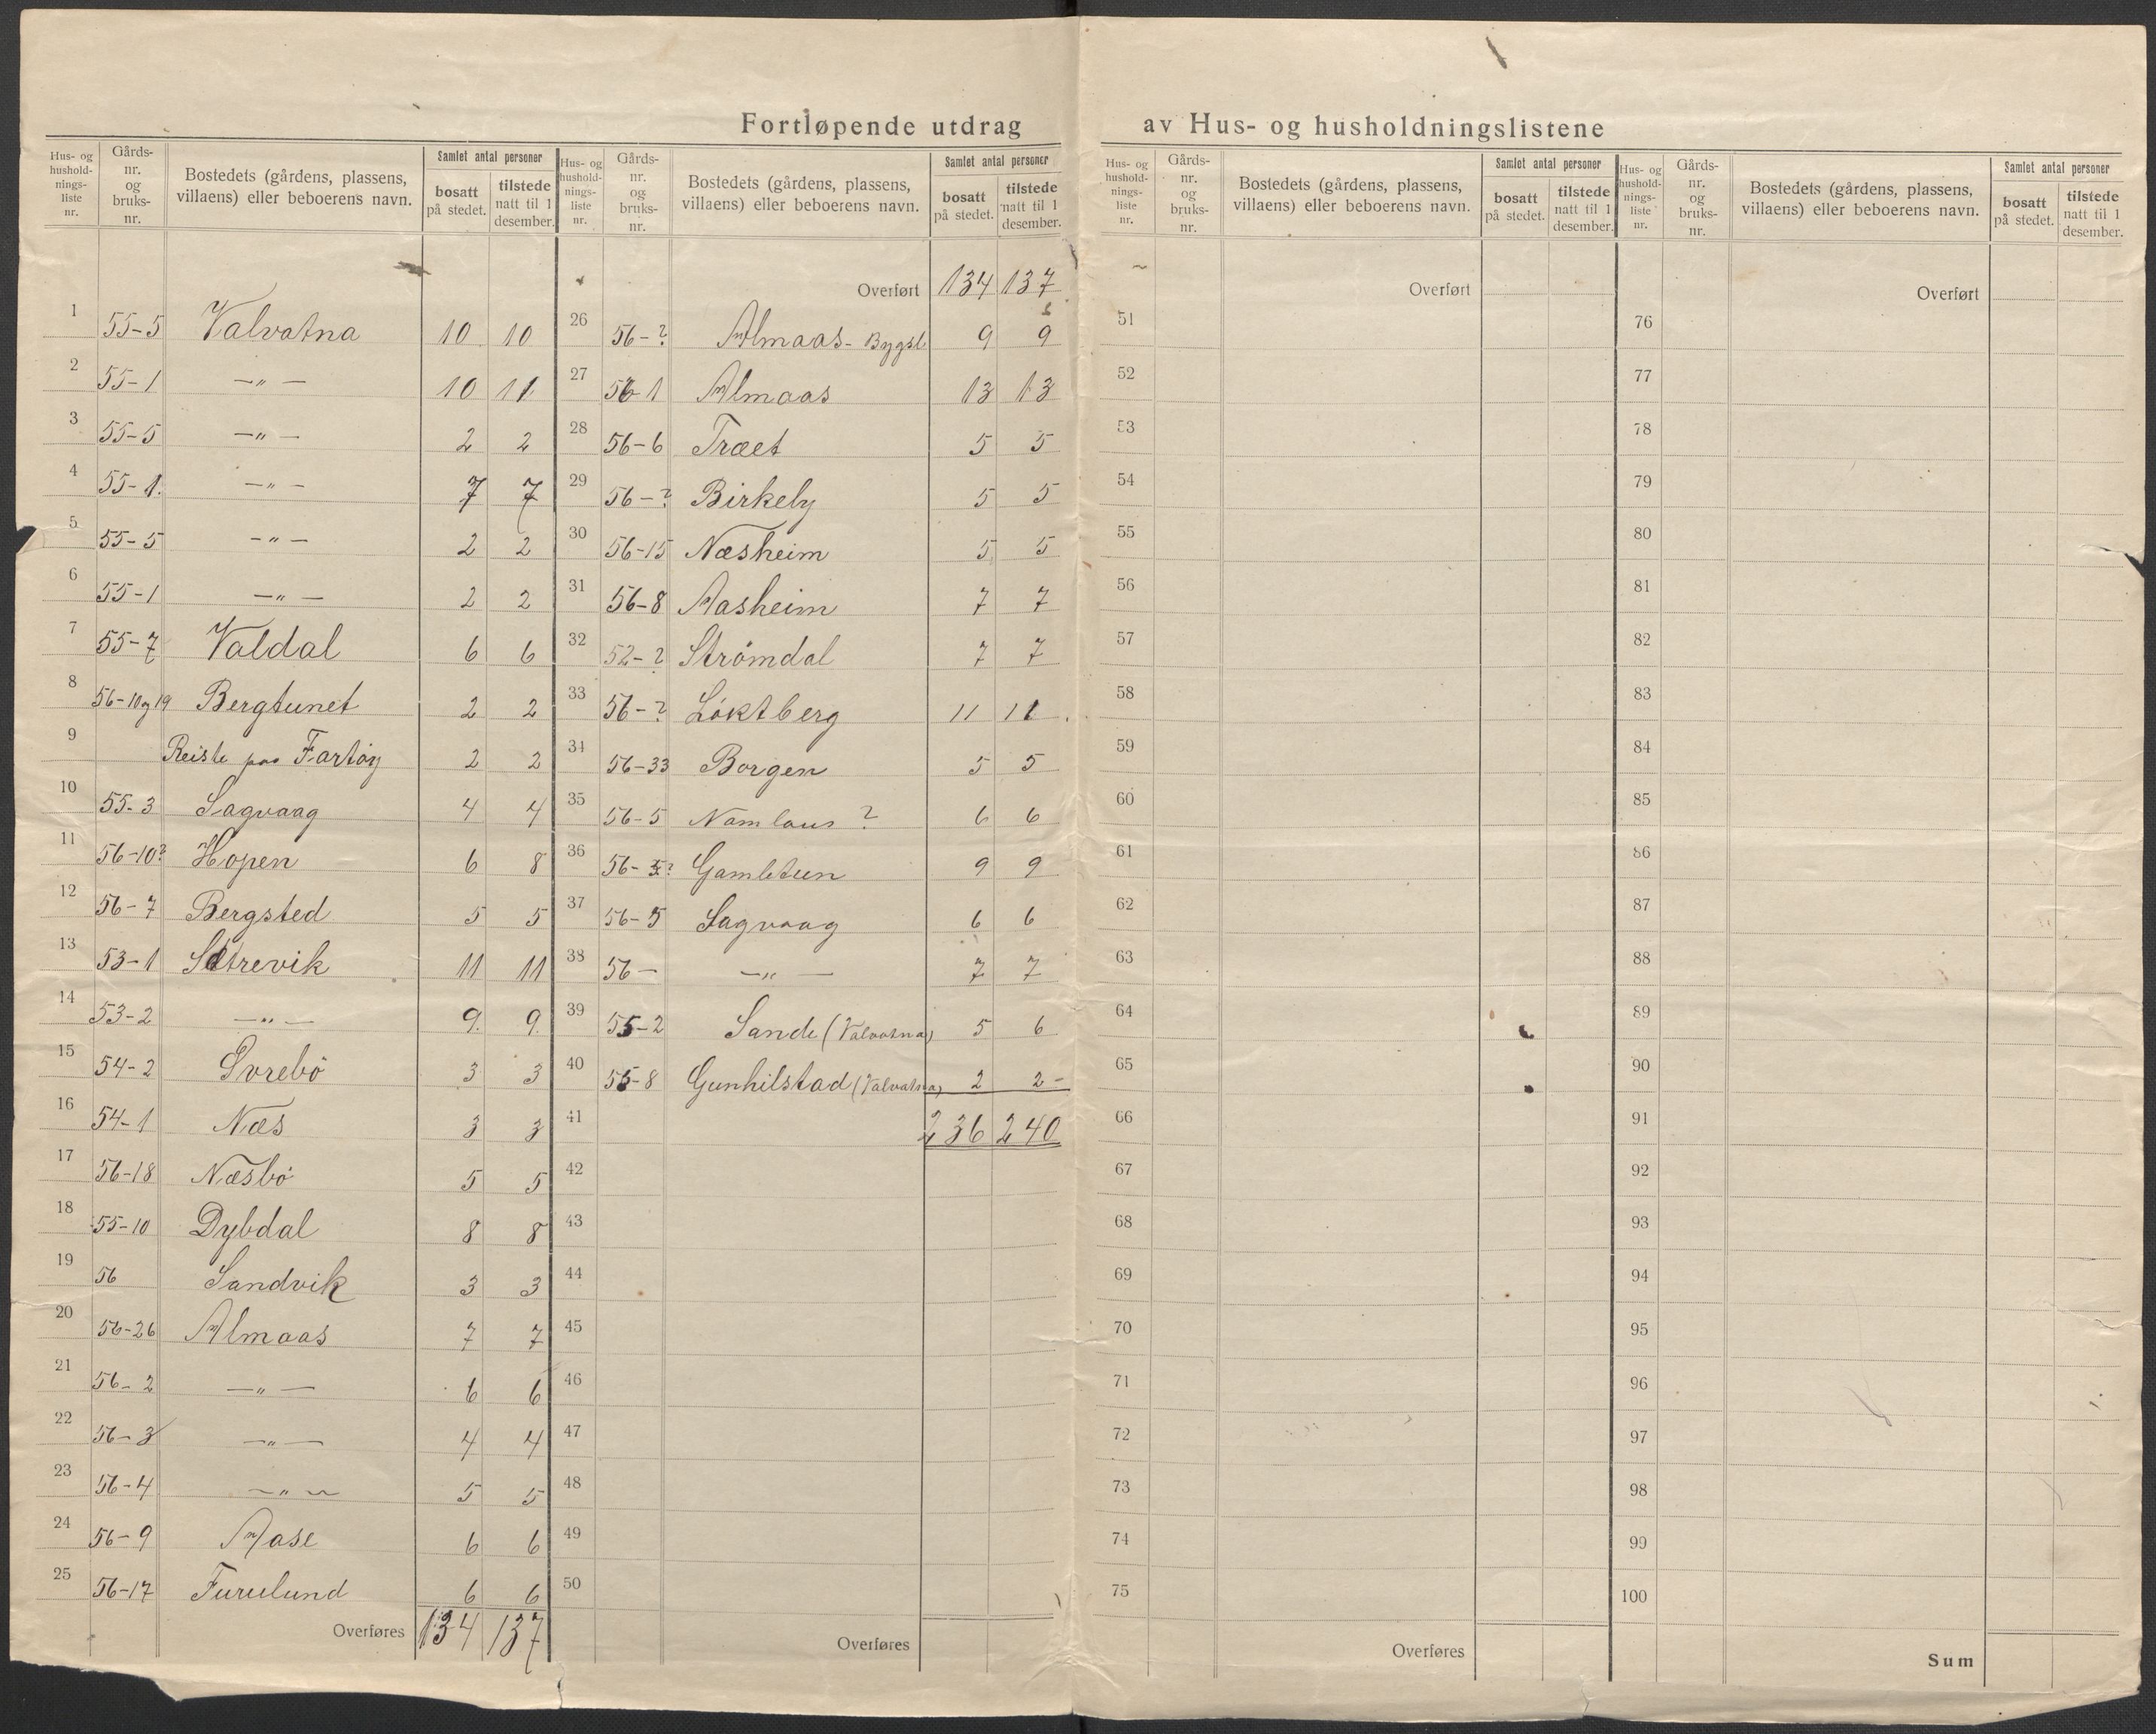 Fortløpende utdrag av Hus- og husholdningslistene
Hus- og husholdningsliste nr. | Gårds-nr. og bruks-nr. | Bostedets (gårdens, plassens, villaens) eller beboerens navn. | Samlet antal personer | bosatt på stedet. | tilstede natt til 1 desember.
1 55-5 Valvatna 10 10
2 55-1 —„— 10 11
3 55-5 —„— 2 2
4 55-1. —„— 7 7
5 55-5 —„— 2 2
6 55-1 —„— 2 2
7 55-7 Valdal 6 6
8 56-10og19 Bergtunet 2 2
9 Reiste paa Fartøy 2 2
10 55-3 Sagvaag 4 4
11 56-10? Hopen 6 8
12 56-7 Bergsted 5 5
13 53-1 Setrevik 11 11
14 53-2 —„— 9. 9.
15 54-2 3 3
16 54-1 Næs 3 3
17 56-18 Næsbö 5 5
18 55-10 Dybdal 8 8
19 56 Sandvik 3 3
20 56-26 Almaas 7 7
21 56-2 —„— 6 6
22 56-3 —„— 4 4
23 56-4 —„— 5 5
24 56-9 Aase 6 6
25 56-17 Furulund 6 6
Overføres 134 137
Hus- og husholdningsliste nr. | Gårds-nr. og bruks-nr. | Bostedets (gårdens, plassens, villaens) eller beboerens navn. | Samlet antal personer | bosatt på stedet. | tilstede natt til 1 desember.
Overført 134 137
26 56-? Almaas- Bygsl 9 9
27 56-1 Almaas 13 13
28 56-6 Træet 5 5
29 56-? Birkely 5 5
30 56-15 Næsheim 5 5
31 56-8 Aasheim 7 7
32 52-? Strömdal 7 7
33 56-? Löktberg 11 11
34 56-33 Borgen 5 5
35 56-5 Namlaus ? 6 6
36 56-5? Gamletun 9 9
37 56-5 Sagvaag 6 6
38 56- —„— 7 7
39 55-2 Sande (Valvatna) 5 6
40 55-8 Gunhilstad (Valvatna) 2 2-
41 236 240
42
43
44
45
46
47
48
49
50
Overføres
Hus- og husholdningsliste nr. | Gårds-nr. og bruks-nr. | Bostedets (gårdens, plassens, villaens) eller beboerens navn. | Samlet antal personer | bosatt på stedet. | tilstede natt til 1 desember.
Overført
51
52
53
54
55
56
57
58
59
60
61
62
63
64
65
66
67
68
69
70
71
72
73
74
75
Overføres
Hus- og husholdningsliste nr. | Gårds-nr. og bruks-nr. | Bostedets (gårdens, plassens, villaens) eller beboerens navn. | Samlet antal personer | bosatt på stedet. | tilstede natt til 1 desember.
Overført
76
77
78
79
80
81
82
83
84
85
86
87
88
89
90
91
92
93
94
95
96
97
98
99
100
Sum